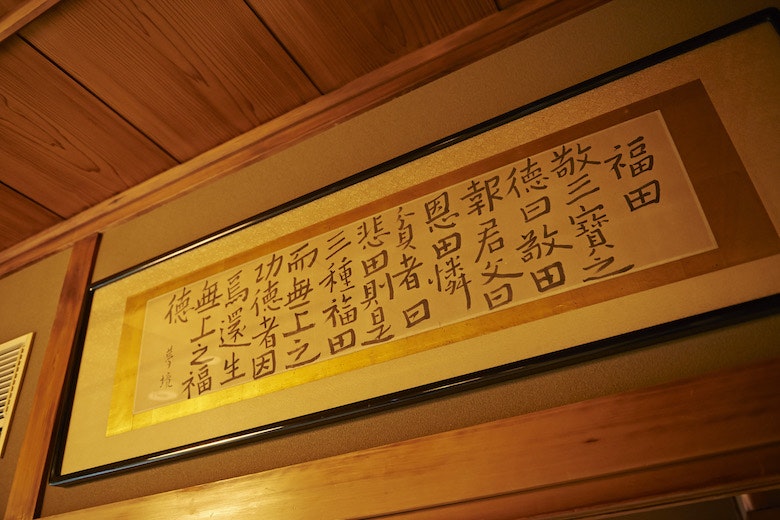 福田
敬三寶之
徳曰敬田
報君父曰
恩田憐
貧者曰
悲田則是
三種福田
而無上之
功徳者因
焉還生
無上之福
徳